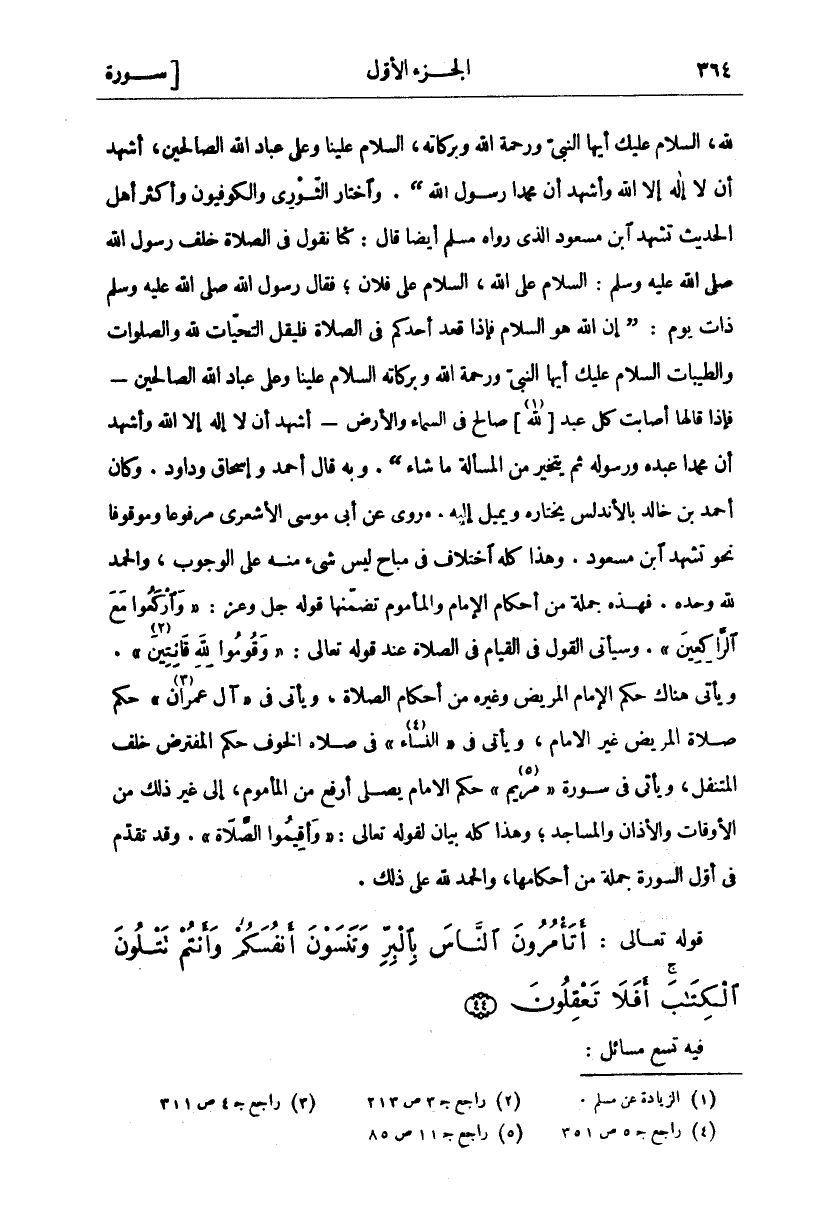 ٣٦٤ الجـزء الأوّل [ ســورة
لله، السلام عليك أيها النبيّ ورحمة الله وبركاته، السلام علينا وعلى عباد الله الصالحين، أشهد
أن لا إلٰه إلا الله وأشهد أن محمدا رسول الله” . وٱختار الثَّوْرى والكوفيون وأكثر أهل
الحديث تشهد ٱبن مسعود الذى رواه مسلم أيضا قال : كنا نقول فى الصلاة خلف رسول الله
صلى الله عليه وسلم : السلام على الله ، السلام على فلان ؛ فقال رسول الله صلى الله عليه وسلم
ذات يوم : ”إن الله هو السلام فإذا قعد أحدكم فى الصلاة فليقل التحيّات لله والصلوات
والطيبات السلام عليك أيها النبيّ ورحمة الله وبركاته السلام علينا وعلى عباد الله الصالحين —
فإذا قالها أصابت كل عبد [لله](١) صالح فى السماء والأرض — أشهد أن لا إله إلا الله وأشهد
أن محمدا عبده ورسوله ثم يتخير من المسألة ما شاء“ . وبه قال أحمد وإسحاق وداود . وكان
أحمد بن خالد بالأندلس يختاره ويميل إليه . وروى عن أبى موسى الأشعرى مرفوعا وموقوفا
نحو تشهد ٱبن مسعود . وهذا كله ٱختلاف فى مباح ليس شىء منـه على الوجوب ، والحمد
لله وحده . فهـذه جملة من أحكام الإمام والمأموم تضمّنها قوله جل وعز : « وَٱرْكَعُوا مَعَ
ٱلرَّاكِعِينَ » . وسيأتى القول فى القيام فى الصلاة عند قوله تعالى : « وَقُومُوا لِلَّهِ قَانِتِينَ(٢) » .
ويأتى هناك حكم الإمام المريض وغيره من أحكام الصلاة ، ويأتى فى « آل عمران(٣) » حكم
صـلاة المريض غير الامام ، ويأتى فى « النساء(٤) » فى صـلاه الخوف حكم المفترض خلف
المتنفل ، ويأتى فى سـورة « مريم(٥) » حكم الامام يصلى أرفع من المأموم ، إلى غير ذلك من
الأوقات والأذان والمساجد ؛ وهذا كله بيان لقوله تعالى : « وَأَقِيمُوا الصَّلَاةَ » . وقد تقدّم
فى أوّل السورة جملة من أحكامها، والحمد لله على ذلك .
قوله تعـالى : أَتَأْمُرُونَ ٱلنَّاسَ بِٱلْبِرِّ وَتَنسَوْنَ أَنفُسَكُمْ وَأَنتُمْ تَتْلُونَ
ٱلْكِتَٰبَۚ أَفَلَا تَعْقِلُونَ ٤٤
فيه تسع مسائل :
(١) الزيادة عن مسلم . (٢) راجع جـ ٣ ص ٢١٣ (٣) راجع جـ ٤ ص ٣١١
(٤) راجع جـ ٥ ص ٣٥١ (٥) راجع جـ ١١ ص ٨٥